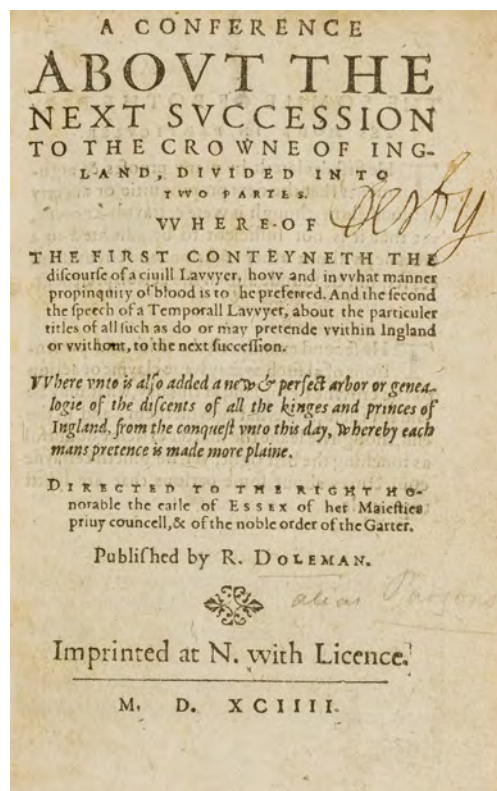 A CONFERENCE
ABOVT THE
NEXT SVCCESSION
TO THE CROWNE OF ING-
LAND, DIVIDED INTO
TVVO PARTES.
VVHERE-OF
Derby
THE FIRST CONTEYNETH THE
diſcourſe of a ciuill Lavvyer, hovv and in vvhat manner
propinquity of blood is to be preferred. And the ſecond
the ſpeech of a Temporall Lavvyer, about the particuler
titles of all ſuch as do or may pretende vvithin Ingland
or vvithout, to the next ſucceſſion.
VVhere vnto is alſo added a new & perfect arbor or genea-
logie of the diſcents of all the kinges and princes of
Ingland, from the conqueſt vnto this day, whereby each
mans pretence is made more plaine.
DIRECTED TO THE RIGHT HO-
norable the earle of ESSEX of her Maieſties
priuy councell, & of the noble order of the Garter.
Publiſhed by R. DOLEMAN.
alias Parsons
Imprinted at N. with Licence.
M. D. XCIIII.